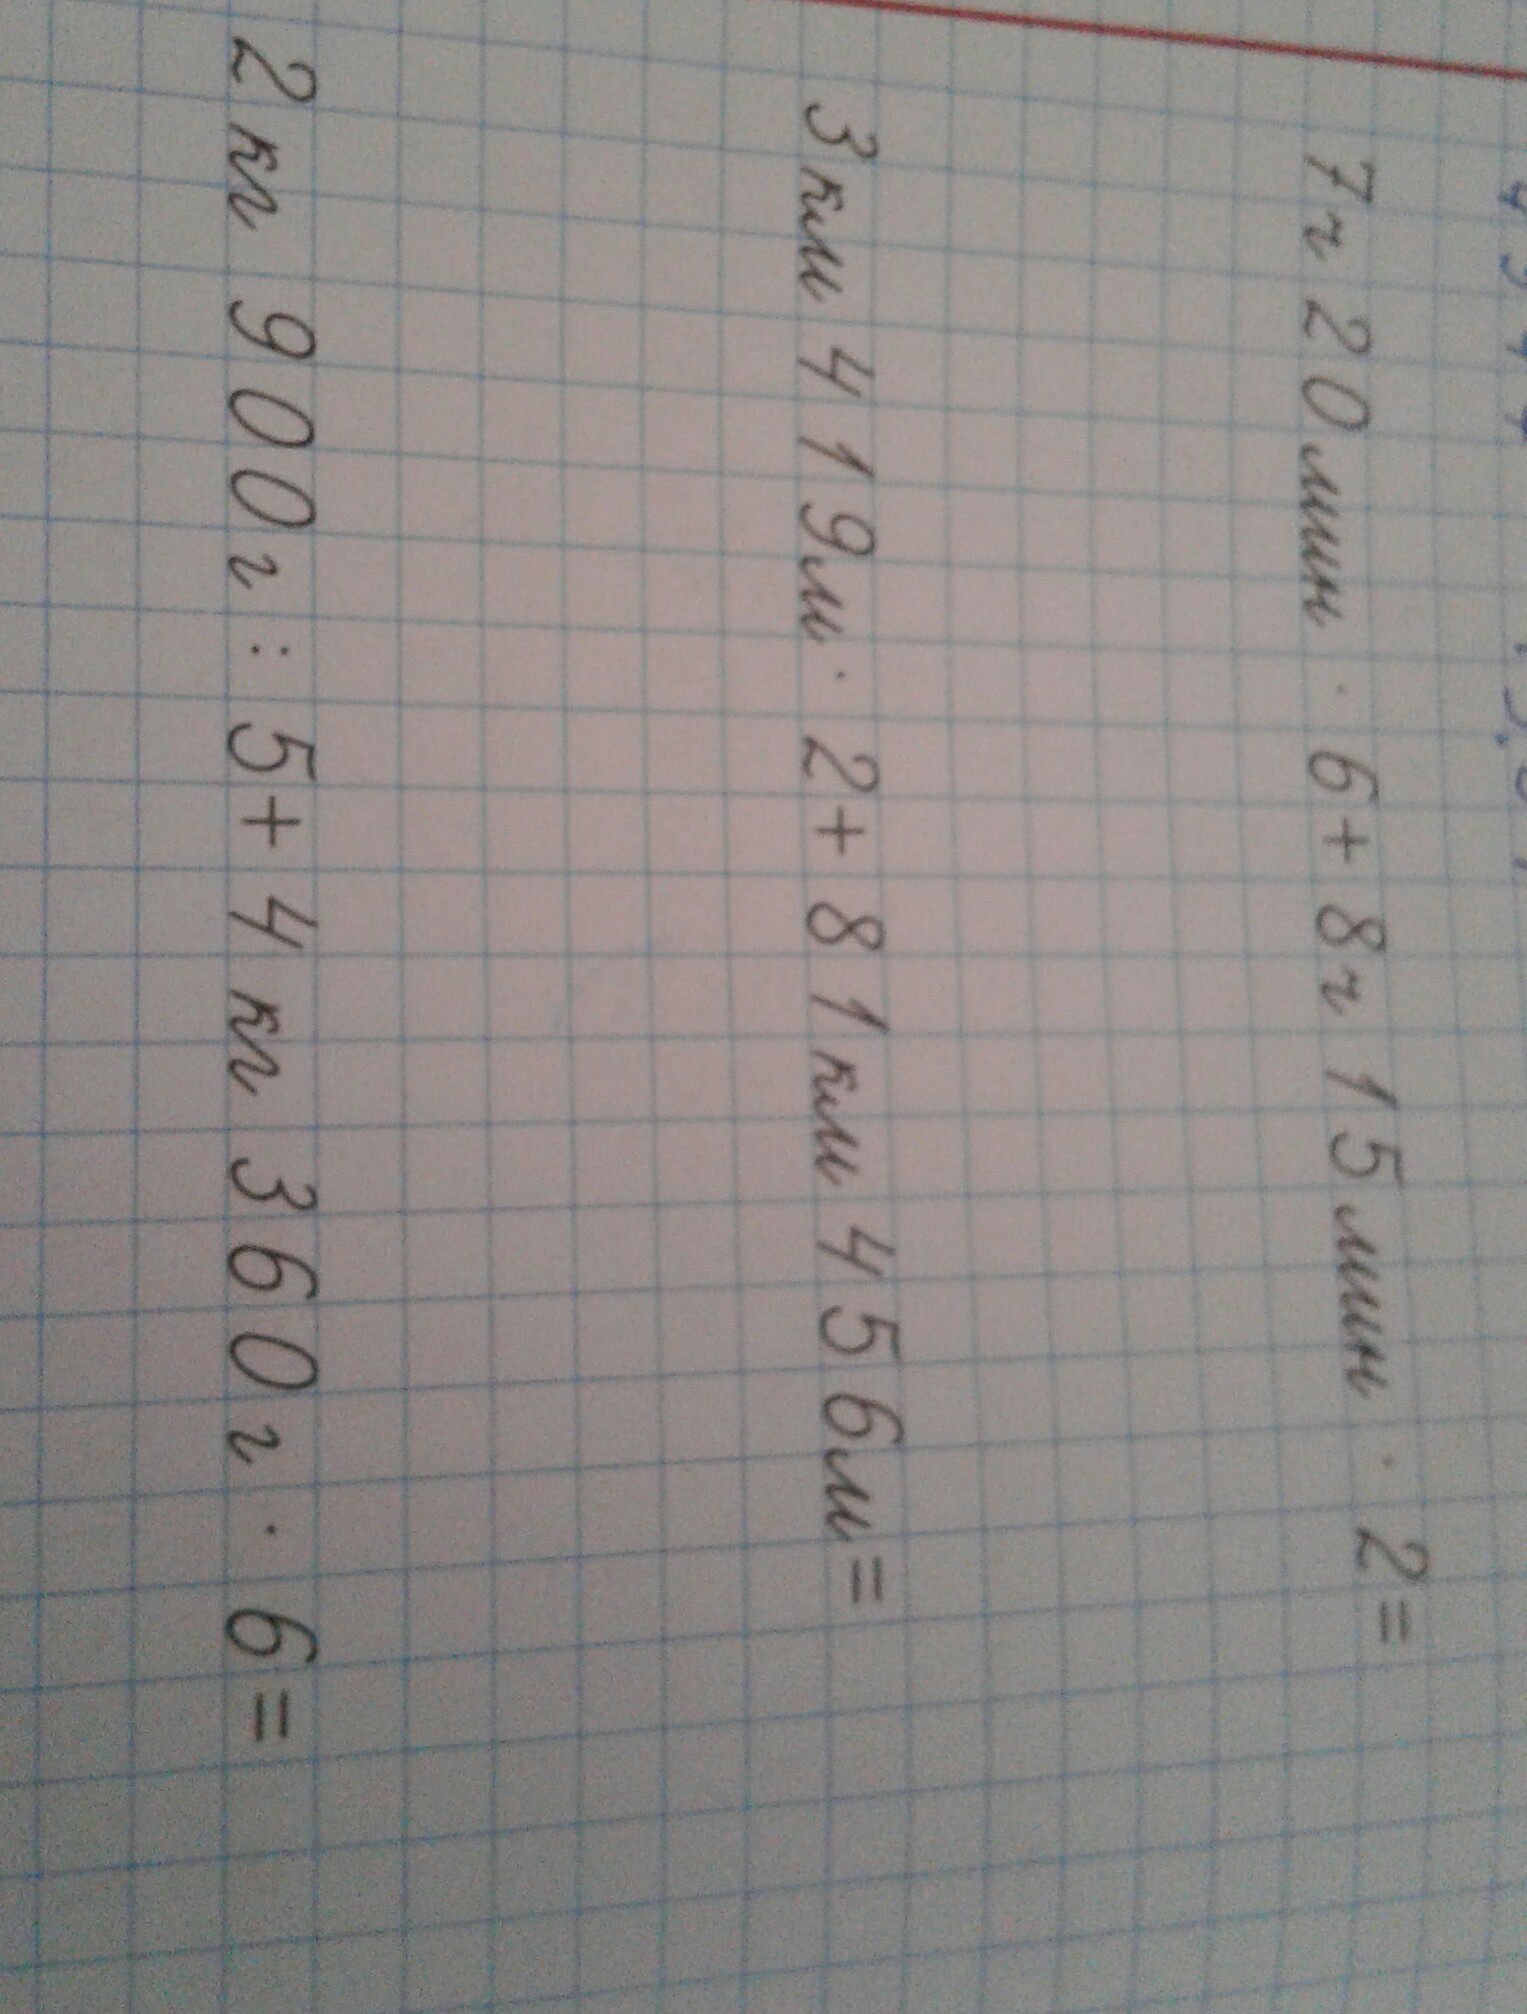 7ч 20мин · 6+8ч 15мин · 2=
3км 419м · 2+81км 456м=
2кг 900г : 5+4кг 360г · 6=